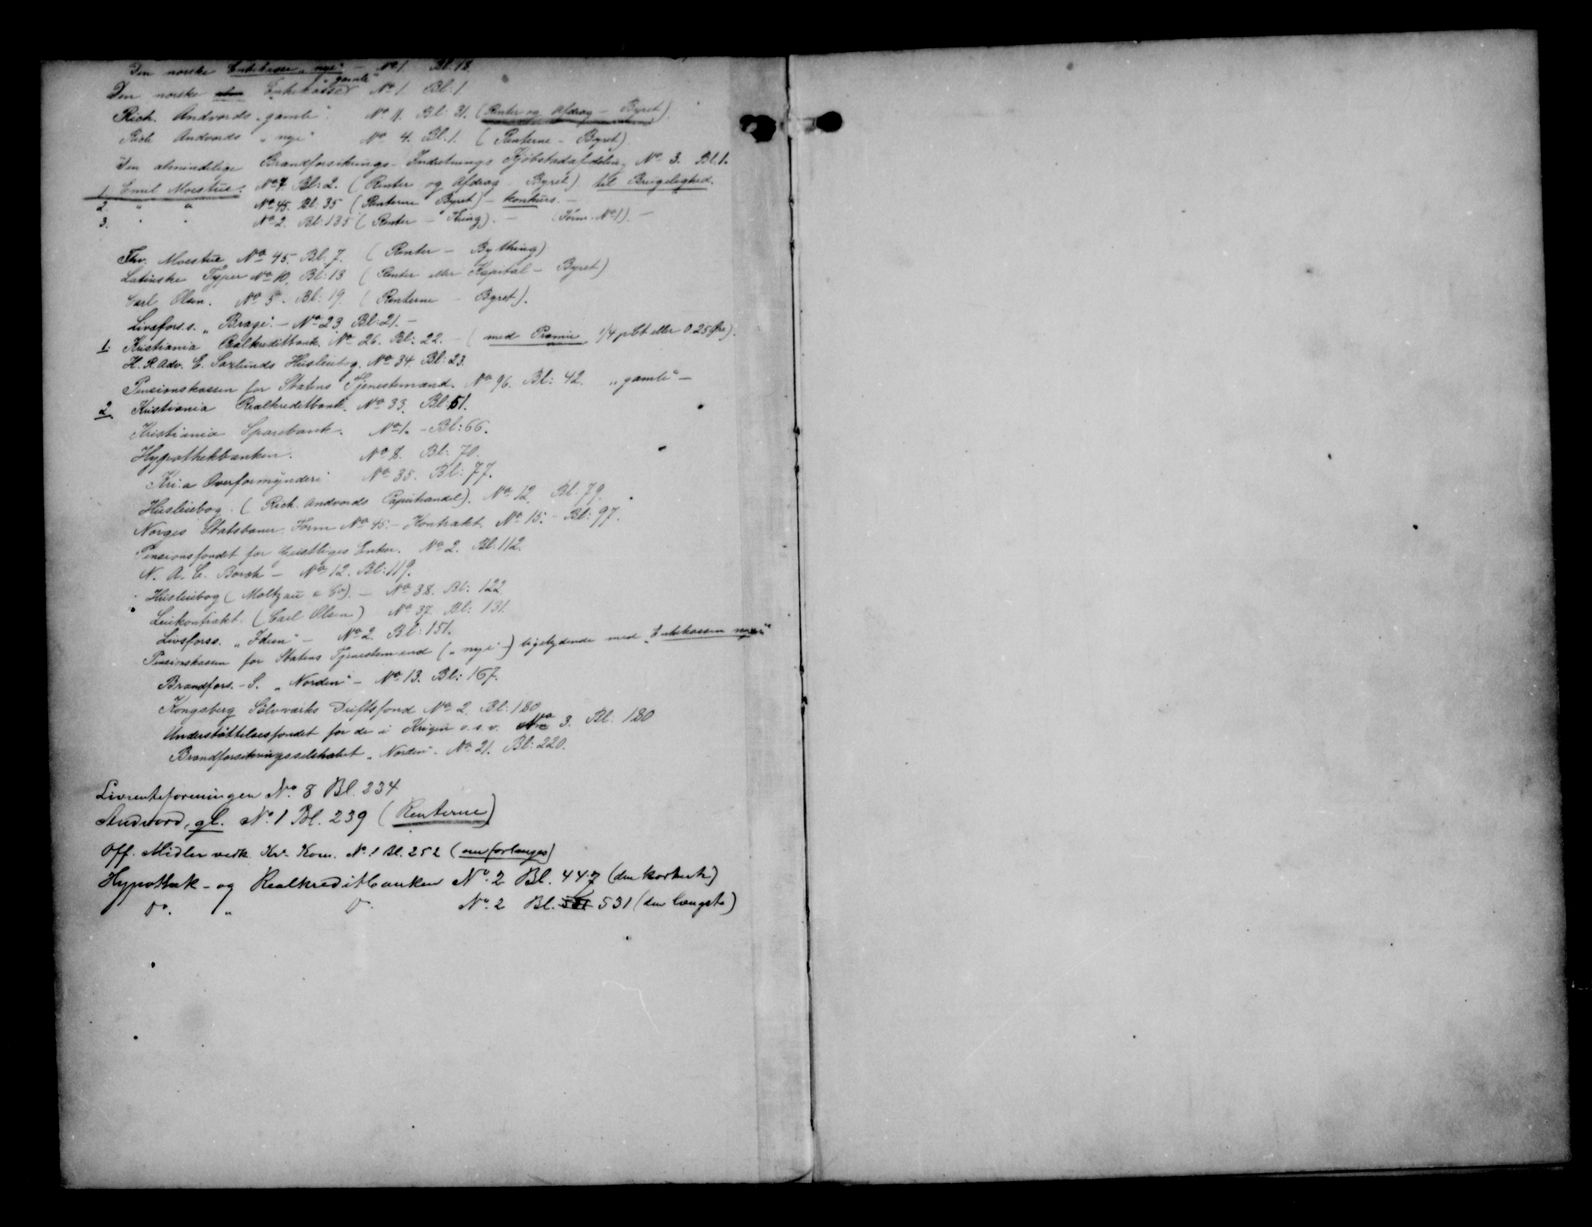 Den norske Enkekasse „nye“ – No 1 Bl: 18.
Den norske Enkekasse „gamle“ No 1. Bl: 1
Rich. Andvords „gamle“. No 1. Bl: 31. (Renter og Afdrag – Byret)
Rich Andvords „nye“ No 4. Bl. 1. (Renterne – Byret)
Den almindelige Brandforsikrings-Indretnings Kjøbstadafdeling No 3. Bl. 1.
1. Emil Moestue: No 7 Bl: 2. (Renter og Afdrag Byret) til Brugelighed.
2. " " No 45. Bl. 35 (Renterne Byret) – konkurs. –
3. " " No 2. Bl. 135 (Renter – Thing). – (Form. No 1). –
Thv. Moestue No 45. Bl. 7. (Renter – Bything)
Latinske Typer No 10. Bl: 13 (Renter eller Kapital – Byret)
Carl Olsen. No 5. Bl: 19. (Renterne – Byret).
Livsfors.s. „Brage“. – No 23 Bl: 21. –
1. Kristiania Realkreditbank. No 26. Bl: 22. – (med Præmie 1/4 pCt eller 0.25 Øre).
H. R. Adv. C. Saxlunds Husleiebog. No 34. Bl: 23.
Pensionskassen for Statens Tjenestemænd. No 96. Bl: 42. „gamle“ –
2. Kristiania Realkreditbank. No 33. Bl. 51.
Kristiania Sparebank. No 1. – Bl: 66.
Hypothekbanken. No 8. Bl. 70.
Kr:a Overformynderi No 35. Bl: 77.
Husleiebog. (Rich. Andvords Papirhandel). No 12. Bl. 79.
Norges Statsbaner. Form No 45. – Kontrakt. No 15. – Bl: 97.
Pensionsfondet for Geistliges Enker. No 2. Bl. 112.
N. A. C. Borch – No 12. Bl: 119.
Husleiebog (Moltzau & Co). – No 38. Bl: 122
Leiekontrakt. (Carl Olsen) No 37. Bl: 131.
Livsforss. „Idun“ – No 2 Bl: 151.
Pensionskassen for Statens Tjenestemænd („nye“ –) ligelydende med „Enkekassen nye“
Brandfors.-S. „Norden“ – No 13. Bl: 167.
Kongsberg Sølvværks Driftsfond No 2. Bl: 180
Understøttelsesfondet for de i Krigen o.s.v. No 3. Bl. 180
Brandforsikringsselskabet „Norden“. No 21. Bl: 220.
Livrenteforeningen No 8 Bl. 234
Andvord, gl. No 1 Bl. 239 (Renterne)
Off. Midler vedk. Kr.a Kom. No 1 Bl. 252 (om forlanges)
Hypothek- og Realkreditbanken No 2 Bl. 447 (den korteste)
Do. " Do. No 2 Bl. 531 (den længste)